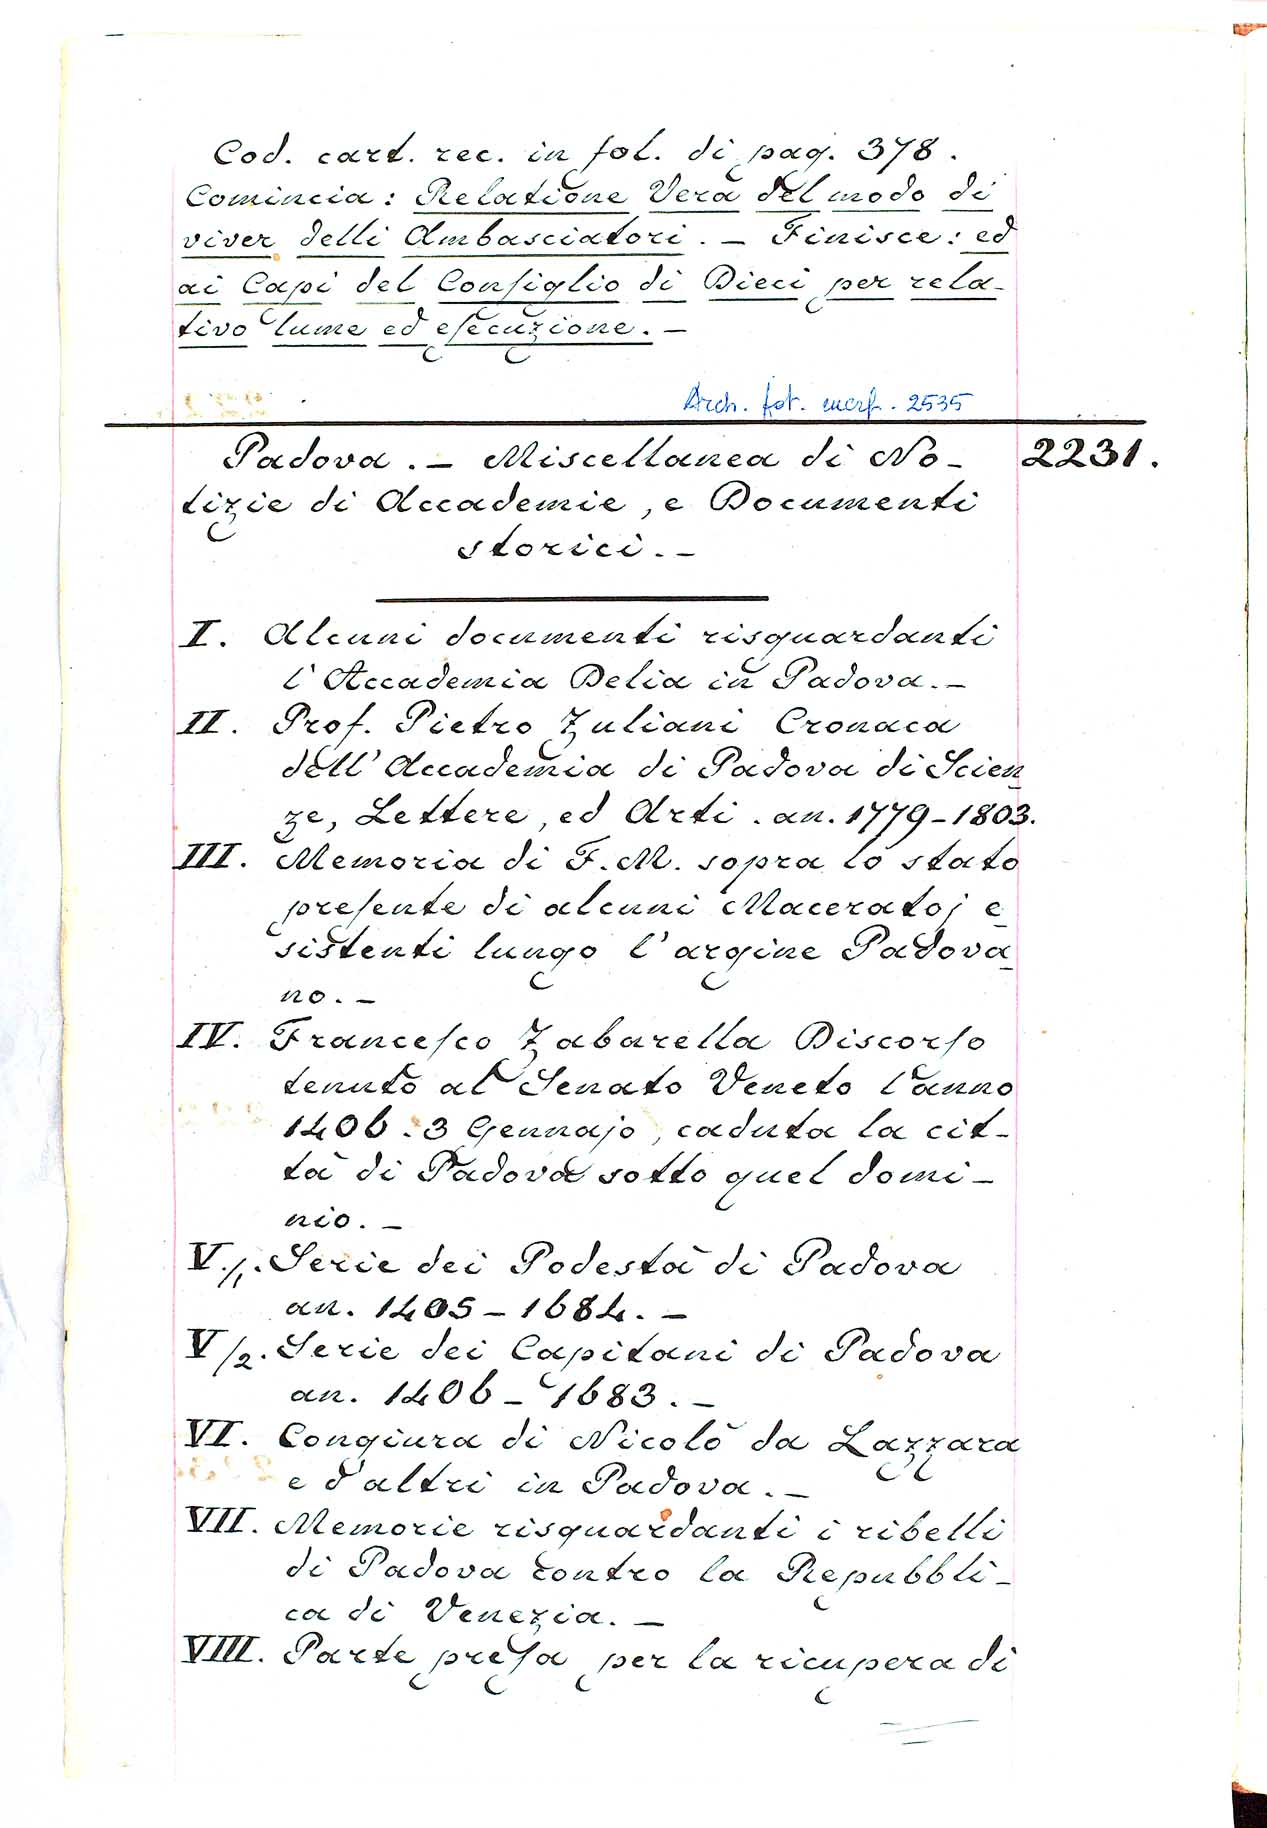 Cod. cart. rec. in fol. di pag. 378.
Comincia: Relatione Vera del modo di
viver delli Ambasciatori. – Finisce: ed
ai Capi del Conſiglio di Dieci per rela-
tivo lume ed eſecuzione. –
Arch. fot. 2535
Padova. – Miscellanea di No- 2231.
tizie di Accademie, e Documenti
storici. –
I. Alcuni documenti risguardanti
l'Accademia Delia in Padova. –
II. Prof. Pietro Zuliani Cronaca
dell'Accademia di Padova di Scien
ze, Lettere, ed Arti. an. 1779-1803.
III. Memoria di F. M. sopra lo stato
preſente di alcuni Maceratoj e
sistenti lungo l'argine Padova
no. –
IV. Franceſco Zabarella Discorſo
tenuto al Senato Veneto l'anno
1406. 3 Gennajo, caduta la cit-
tà di Padova sotto quel domi-
nio. –
V./1. Serie dei Podestà di Padova
an. 1405-1684. –
V/2. Serie dei Capitani di Padova
an. 1406-1683. –
VI. Congiura di Nicolò da Lazzara
e d'altri in Padova. –
VII. Memorie risguardanti i ribelli
di Padova contro la Repubbli-
ca di Venezia. –
VIII. Parte preſa per la ricupera di